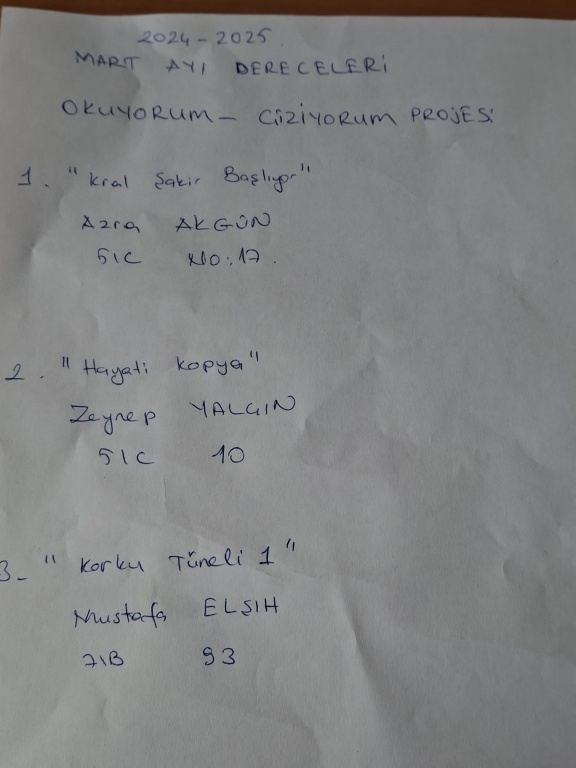 2024-2025.
MART AYI DERECELERİ
OKUYORUM - ÇİZİYORUM PROJESİ
1. "Kral Şakir Başlıyor"
Azra AKGÜN
5/C No:17.
2. "Hayati Kopya"
Zeynep YALÇIN
5/C 10
3- "Korku Tüneli 1"
Mustafa ELŞIH
7/B 93